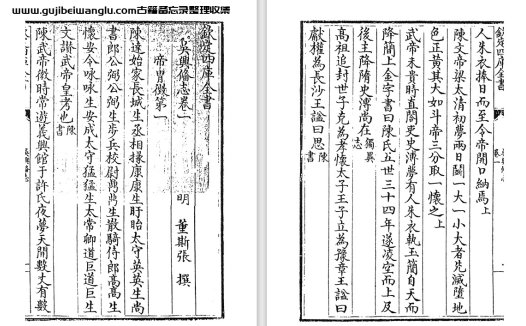 www.gujibeiwanglu.com古籍备忘录整理收集
欽定四庫全書
吳興備志卷一
明 董斯張 撰
帝胄徵第一
陳達始家長城生丞相掾康康生盱眙太守英英生尚
書郎公弼公弼生步兵校尉鼎鼎生散騎侍郎高高生
懷安令咏咏生安成太守猛猛生太常卿道巨道巨生
文讃武帝皇考也陳書
陳武帝微時常遊義興館于許氏夜夢天開數丈有數
人朱衣捧日而至令帝開口納焉上
陳文帝梁太清初夢兩日鬬一大一小大者先滅墮地
色正黃其大如斗帝三分取一懷之上
武帝未貴時直閤吏史溥夢有人朱衣執玉簡自天而
降簡上金字書曰陳氏五世三十四年遂凌空而上及
後主降隋史溥尚在獨異志
高祖追封世子克為孝懷太子王子立為豫章王諡曰
獻權為長沙王諡曰思陳書
欽定四庫全書
卷一